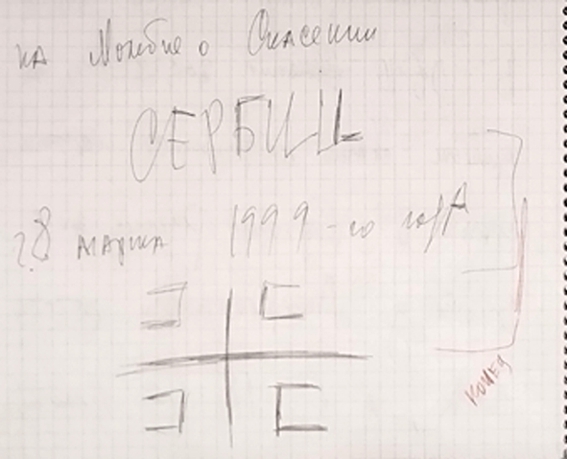 на Молебне о Спасении
СЕРБИИ
28 марта 1999-го года
конец